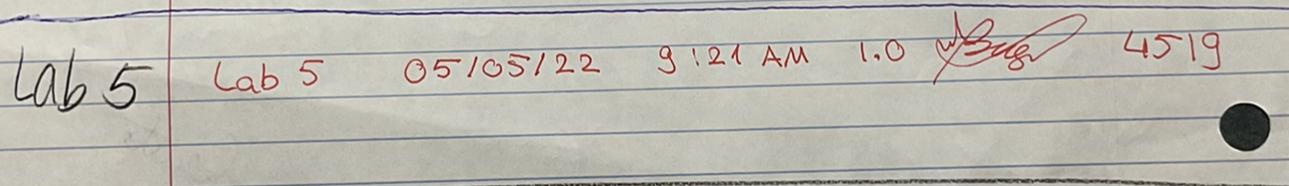 Lab 5 Lab 5 05/05/22 9:21 AM 1.0 4519